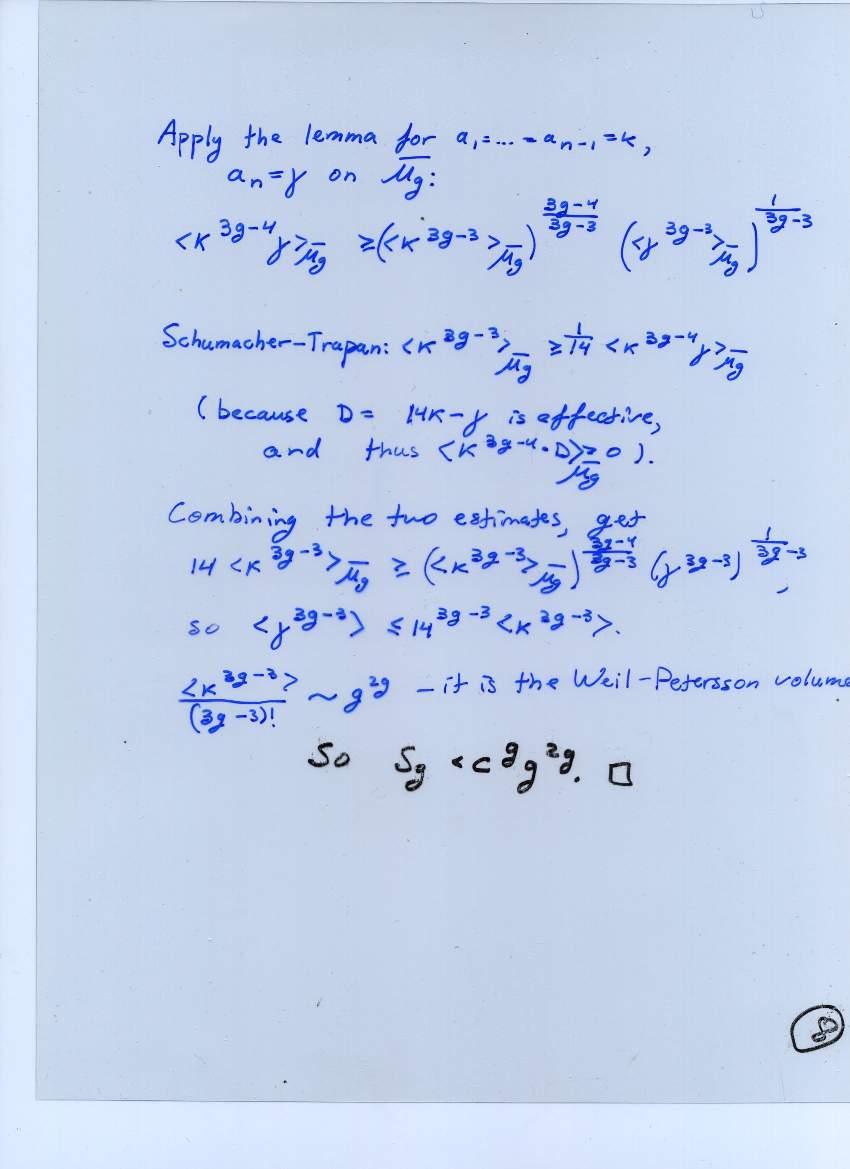 Apply the lemma for a₁=...=aₙ₋₁=κ,
aₙ=γ on M̅g:
<κ^{3g-4}γ>_{M̅g} ≥ (<κ^{3g-3}>_{M̅g})^{\frac{3g-4}{3g-3}} (<γ^{3g-3}>_{M̅g})^{\frac{1}{3g-3}}
Schumacher-Trapan: <κ^{3g-3}>_{M̅g} ≥ \frac{1}{14} <κ^{3g-4}γ>_{M̅g}
(because D = 14κ-γ is effective,
and thus <κ^{3g-4}·D>_{M̅g} ≥ 0).
Combining the two estimates, get
14 <κ^{3g-3}>_{M̅g} ≥ (<κ^{3g-3}>_{M̅g})^{\frac{3g-4}{3g-3}} (γ^{3g-3})^{\frac{1}{3g-3}},
so <γ^{3g-3}> ≤ 14^{3g-3} <κ^{3g-3}>.
\frac{<κ^{3g-3}>}{(3g-3)!} ~ g^{2g} - it is the Weil-Petersson volume
So S_g < c^g g^{2g}. □
8